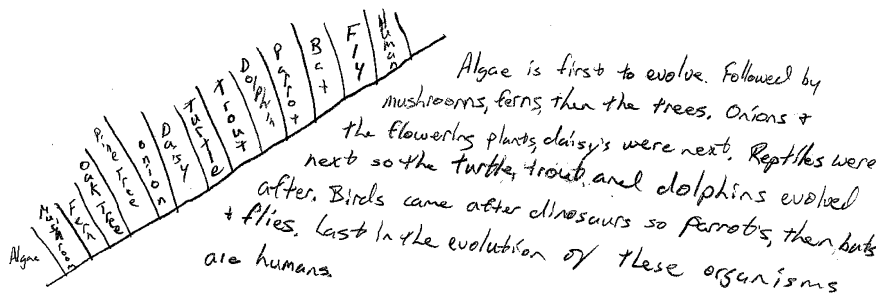 Algae
Mushroom
Fern
Oak Tree
Pine Tree
onion
Daisy
Turtle
Trout
Dolphin
Parrot
Bat
Fly
Human
Algae is first to evolve. Followed by
mushrooms, ferns, then the trees. Onions &
the flowering plants, daisy's were next. Reptiles were
next so the turtle, trout and dolphins evolved
after. Birds came after dinosaurs so parrots, then bats
& flies. Last in the evolution of these organisms
are humans.